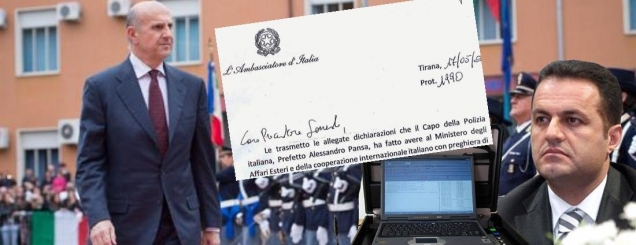 L'Ambasciatore d'Italia
Tirana,
Prot. 1990
Le trasmetto le allegate dichiarazioni che il Capo della Polizia
italiana, Prefetto Alessandro Pansa, ha fatto avere al Ministero degli
Affari Esteri e della cooperazione internazionale italiano con preghiera di